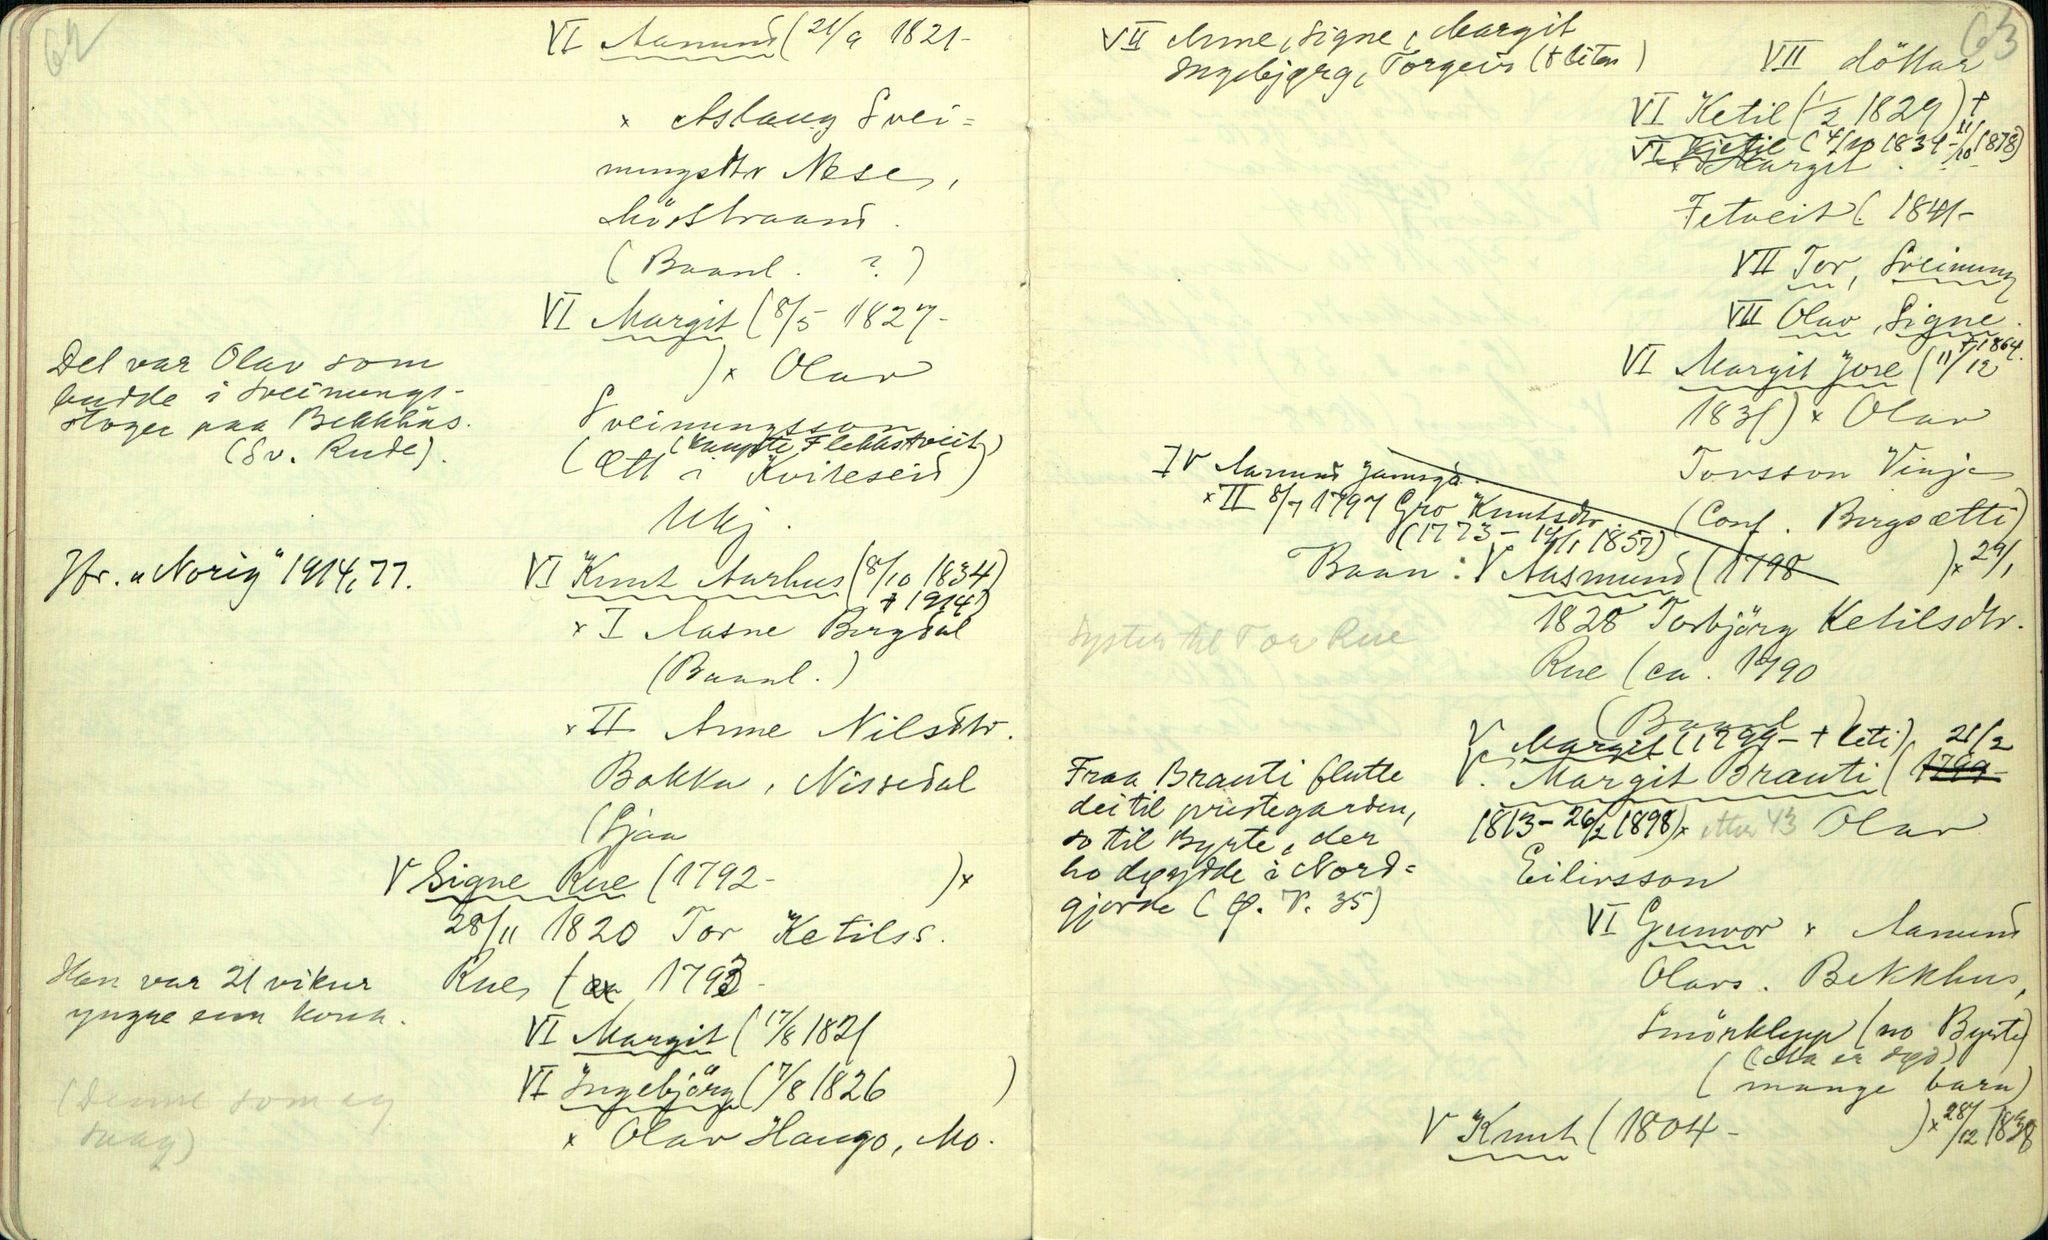 62
VI Aamund (21/9 1821-
x Aslaug Svei=
nungsdtr Nese,
Möstraand.
(Baanl. ?)
VI Margit (8/5 1827-
) x Olav
Sveinungsson
(kaupte Flekkstveit)
(Ætt i Kviteseid)
Ukj.
Det var Olav som
budde i Sveinungs-
stoger paa Bekkhus.
(Sv. Rude).
Jfr. "Norig" 1914, 77.
VI Knut Aarhus (8/10 1834)
+ 1914)
x I Aasne Bergdal
(Baanl.)
x II Anne Nilsdtr.
Bakka, Nissedal
(Gjaa
V Signe Rue (1792- ) x
28/11 1820 Tor Ketilss.
Rue, (ca 1793-
Han var 21 vikur
yngre enn kona.
VI Margit (17/8 1821
VI Ingebjörg (7/8 1826 )
x Olav Haugo, Mo.
(Denne som eg
saag)
63
VII Anne, Signe, Margit
Ingebjørg, Torgeir (+ liten)
VII döttar
VI Ketil (1/2 1829) +
VI Kjetil (4/10 1834-11/10 1878)
x Margit
Fetveit (1841-
VII Tor, Sveinung
VII Olav, Signe.
+ 1864.
VI Margit Jore (11/12
1831) x Olav
Torsson Vinje
(Conf. Bergsætti)
IV Aamund Jamsgd.
x II 8/7 1797 Gro Knutsdtr.
(1773- 1857)
Baan: V Aasmund (1798 ) x 29/1
1828 Torbjörg Ketilsdtr.
Rue (ca. 1790
Syster til Tor Rue
(Baanl)
V Margit (1799- + liti) 21/2
V. Margit Brauti (1799-
1813- 26/2 1898) x etter 43 Olav
Eilivsson
Fraa Brauti flutte
dei til prestegarden,
so til Byrte, der
ho döydde i Nord=
gjorde (Ø. V. 35)
VI Gunvor x Aamund
Olavs. Bekkhus,
Smörklepp (no Byrte)
(Ho er död)
(mange barn)
V Knut (1804- ) x 28/12 1838